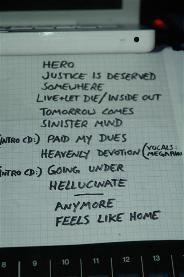 HERO
JUSTICE IS DESERVED
SOMEWHERE
LIVE+LET DIE/INSIDE OUT
TOMORROW COMES
SINISTER MIND
INTRO CD:) PAID MY DUES
HEAVENLY DEVOTION (VOCALS: MEGAPHON
INTRO CD:) GOING UNDER
HELLUCINATE
ANYMORE
FEELS LIKE HOME
8 9 10 11 12 13